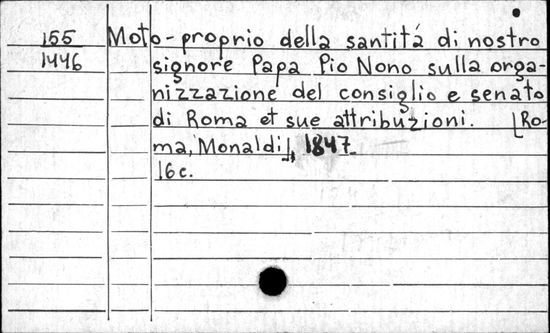 155 Moto-proprio della santitá di nostro
1446 signore Papa Pio Nono sulla orga-
nizzazione del consiglio e senato
di Roma et sue attribuzioni. [Ro-
ma, Monaldi], 1847.
16 c.